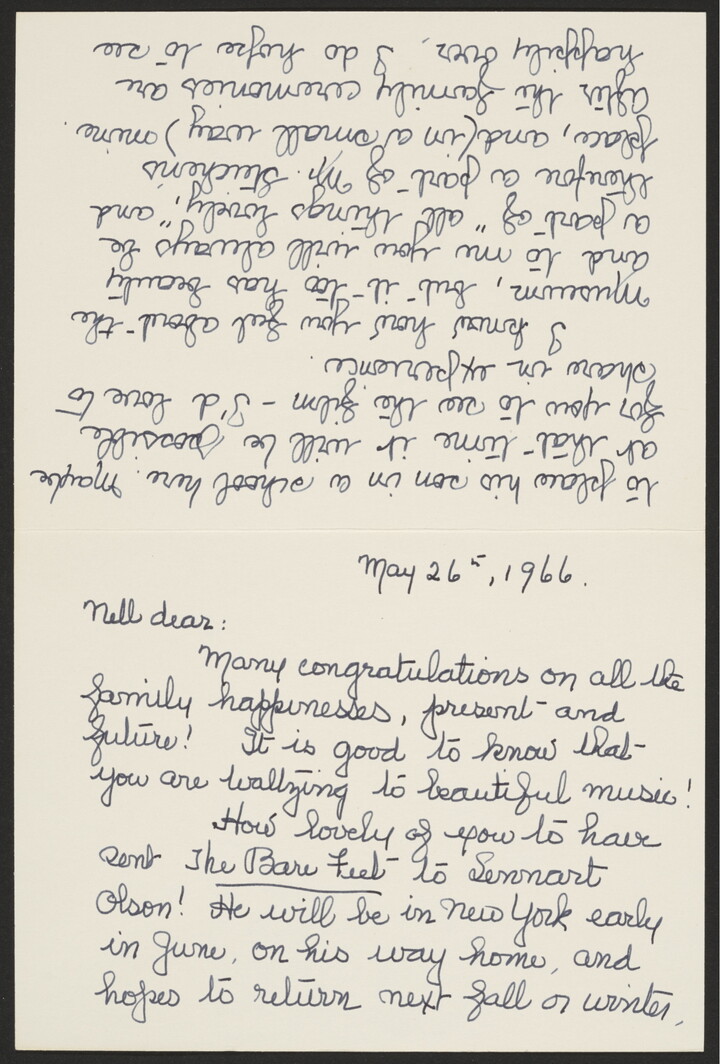 May 26th, 1966.
Nell dear:
Many congratulations on all the
family happinesses, present and
future! It is good to know that
you are waltzing to beautiful music!
How lovely of you to have
sent The Bare Feet to Lennart
Olson! He will be in New York early
in June, on his way home, and
hopes to return next fall or winter,
to place his son in a school here. Maybe
at that time it will be possible
for you to see the film - I'd love to
share in experience.
I know how you feel about the
Museum, but it too has beauty
and to me you will always be
a part of "all things lovely," and
therefore a part of Mr. Steichen's
place, and (in a small way) mine.
After the family ceremonies are
happily over, I do hope to see